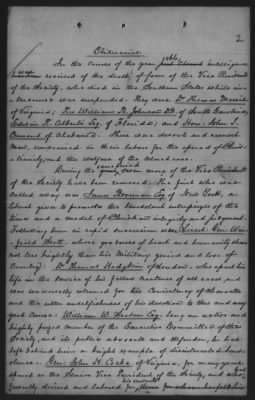 2
Obituaries.
In the course of the year 1866 intelligence
was received of the death of four of the Vice Presidents
of the Society, who died in the Southern States while in-
tercourse was suspended. They are Dr. Thomas Massie
of Virginia; Rev William B. Johnson D.D. of South Carolina;
Edwin R. Alberti Esq. of Florida; and Hon. John J.
Ormond of Alabama. These were devout and earnest
men, undismayed in their labors for the spread of Chris-
tianity, and the welfare of the colored race.
During the year, some more of the Vice Presidents
of the Society have been removed; the first who was
called away was James Boorman Esq of New York, a
liberal giver to promote the benevolent enterprizes of the
times and a model of Christian integrity and judgment.
Following him in rapid succession was Lieut. Gen. Win-
field Scott, whose goodness of heart and humanity shone
not less brightly than his Military genius and love of
Country. Dr Thomas Hodgkin of London, who spent his
life in the service of his fellow creatures of all races and
was universally esteemed for his Consistency of character
and the utter unselfishness of his devotion to this and any
good cause: William W. Seaton Esq. long an active and
highly prized member of the Executive Committee of this
Society, and its public advocate and defender, he has
left behind him a bright example of disinterested benev-
olence. Gen. John H. Cocke of Virginia, for many years
named as the Senior Vice President of the Society, and who
fervently desired and labored for